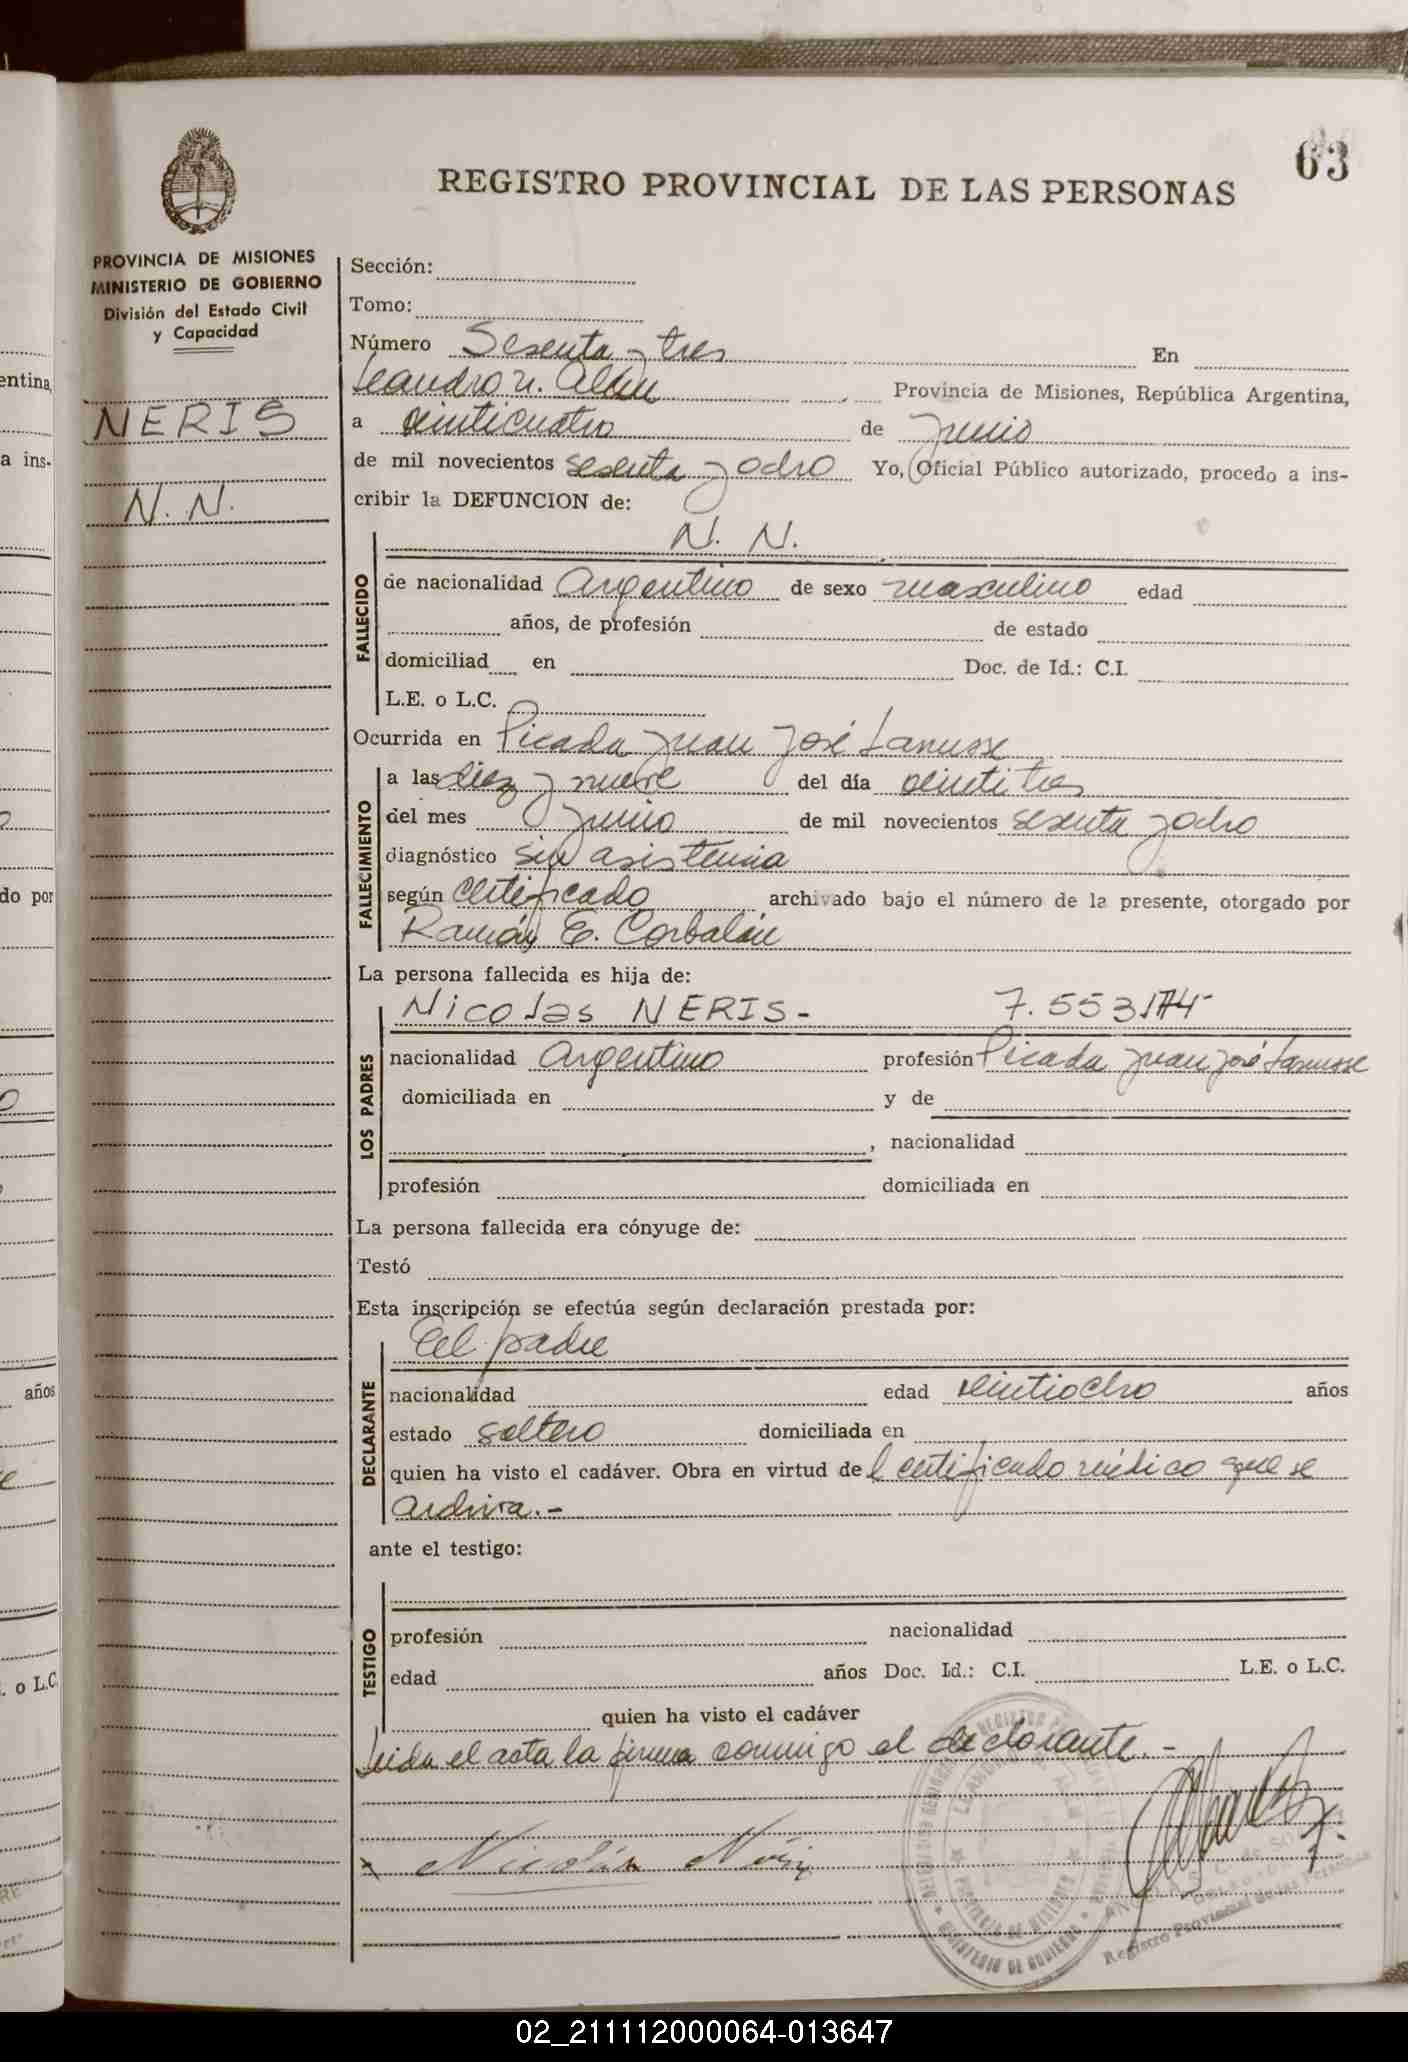 63
REGISTRO PROVINCIAL DE LAS PERSONAS
PROVINCIA DE MISIONES
MINISTERIO DE GOBIERNO
División del Estado Civil
y Capacidad
NERIS
N. N.
Sección:
Tomo:
Número Sesenta y tres En
Leandro N. Alem Provincia de Misiones, República Argentina,
a veinticuatro de Junio
de mil novecientos sesenta y ocho Yo, Oficial Público autorizado, procedo a ins-
cribir la DEFUNCION de:
N. N.
FALLECIDO
de nacionalidad Argentino de sexo masculino edad
años, de profesión de estado
domiciliad en Doc. de Id.: C.I.
L.E. o L.C.
Ocurrida en Picada Juan José Lanusse
FALLECIMIENTO
a las diez y nueve del día veintitres
del mes Junio de mil novecientos sesenta y ocho
diagnóstico sin asistencia
según certificado archivado bajo el número de la presente, otorgado por
Ramón E. Corbalán
La persona fallecida es hija de:
LOS PADRES
Nicolas NERIS.- 7.553.174-
nacionalidad Argentino profesión Picada Juan José Lanusse
domiciliada en y de
, nacionalidad
profesión domiciliada en
La persona fallecida era cónyuge de:
Testó
Esta inscripción se efectúa según declaración prestada por:
DECLARANTE
El padre
nacionalidad edad veintiocho años
estado soltero domiciliada en
quien ha visto el cadáver. Obra en virtud del certificado médico que se
archiva.-
ante el testigo:
TESTIGO
profesión nacionalidad
edad años Doc. Id.: C.I. L.E. o L.C.
quien ha visto el cadáver
Leida el acta la firma conmigo el declarante.-
x Nicolás Neris
PROVINCIA DE MISIONES
MINISTERIO DE GOBIERNO
Registro Provincial de las Personas
entina,
a ins-
do por
años
. o L.C.
02_211112000064-013647